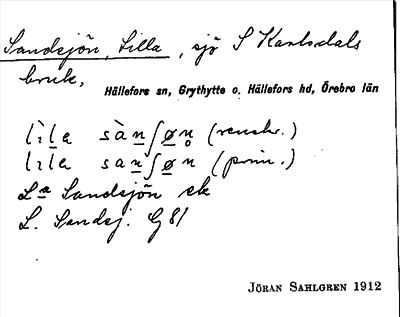 Sandsjön, Lilla, sjö S Karlsdals
bruk,
Hällefors sn, Grythytte o. Hällefors hd, Örebro län
lìla sànʃøn (renskr.)
lıla sanʃøn (prim.)
La Sandsjön ek
L. Sandsj. G81
JÖRAN SAHLGREN 1912